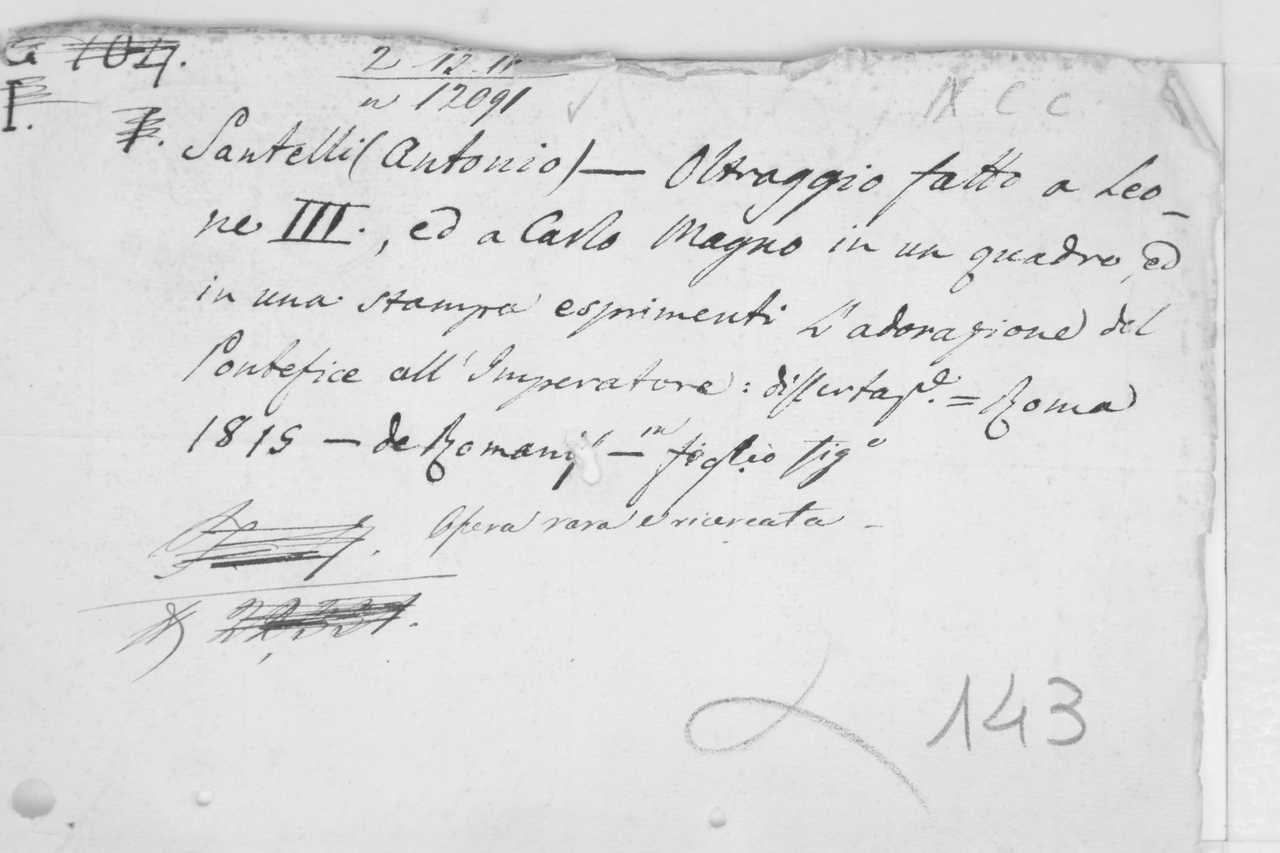 G 104.
I.
2 12 11
n 12091
IX C C
Santelli (Antonio) — Oltraggio fatto a Leo_
ne III., ed a Carlo Magno in un quadro, ed
in una stampa esprimenti L'adorazione del
Pontefice all'Imperatore: dissertaze. = Roma
1815 — de Romanis — in foglio fig°
Opera rara e ricercata –
143